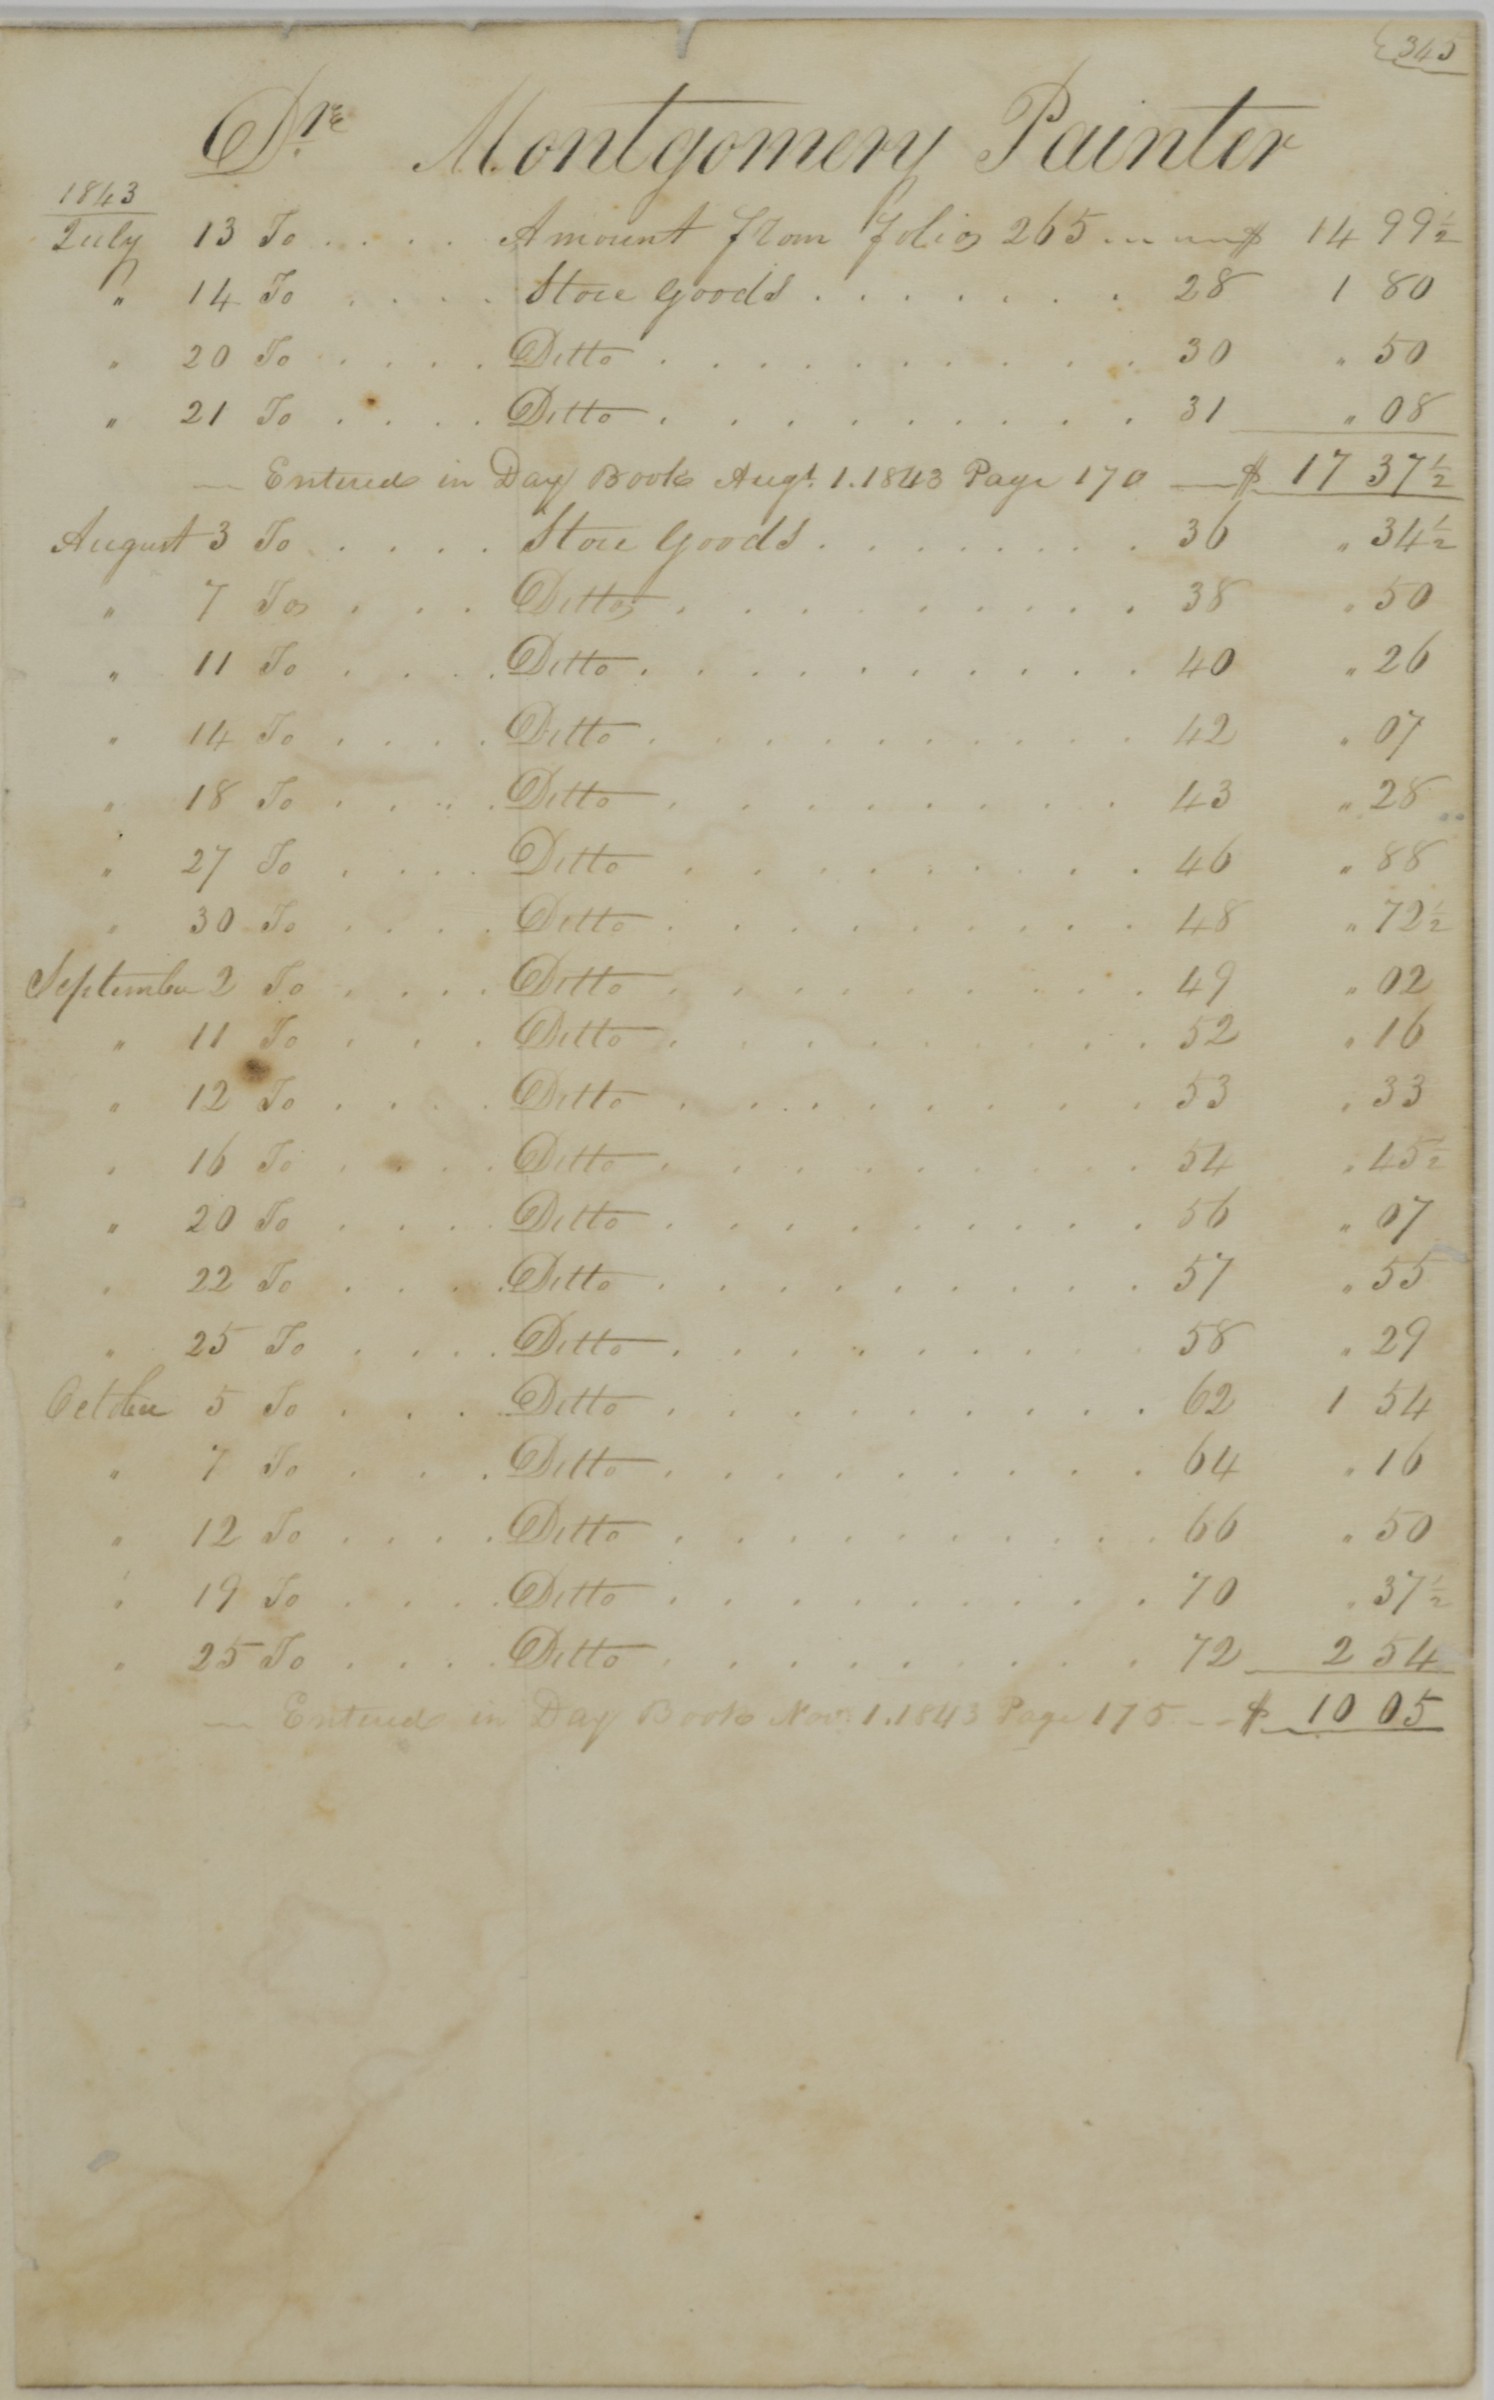 345
Dr. Montgomery Painter
1843
July 13 To . . . . Amount from folio 265 $ 14 99½
" 14 To . . . . Store Goods . . . . . . . 28 1 80
" 20 To . . . . Ditto . . . . . . . . . . 30 " 50
" 21 To . . . . Ditto . . . . . . . . . . 31 " 08
— Entered in Day Book Augt. 1. 1843 Page 170 — $ 17 37½
August 3 To . . . . Store Goods . . . . . . . 36 " 34½
" 7 To . . . Ditto . . . . . . . . . . 38 " 50
" 11 To . . . . Ditto . . . . . . . . . . 40 " 26
" 14 To . . . . Ditto . . . . . . . . . . 42 " 07
" 18 To . . . . Ditto . . . . . . . . . 43 " 28
" 27 To . . . . Ditto . . . . . . . . . 46 " 88
" 30 To . . . . Ditto . . . . . . . . . 48 " 72½
September 2 To . . . . Ditto . . . . . . . . . 49 " 02
" 11 To . . . . Ditto . . . . . . . . . 52 " 16
" 12 To . . . . Ditto . . . . . . . . . 53 " 33
" 16 To . . . . Ditto . . . . . . . . . 54 " 45½
" 20 To . . . . Ditto . . . . . . . . . 56 " 07
" 22 To . . . . Ditto . . . . . . . . . 57 " 55
" 25 To . . . . Ditto . . . . . . . . . 58 " 29
October 5 To . . . . Ditto . . . . . . . . . 62 1 54
" 7 To . . . . Ditto . . . . . . . . . 64 " 16
" 12 To . . . . Ditto . . . . . . . . . 66 " 50
" 19 To . . . . Ditto . . . . . . . . . 70 " 37½
" 25 To . . . . Ditto . . . . . . . . . 72 2 54
— Entered in Day Book Nov. 1. 1843 Page 175 — $ 10 05